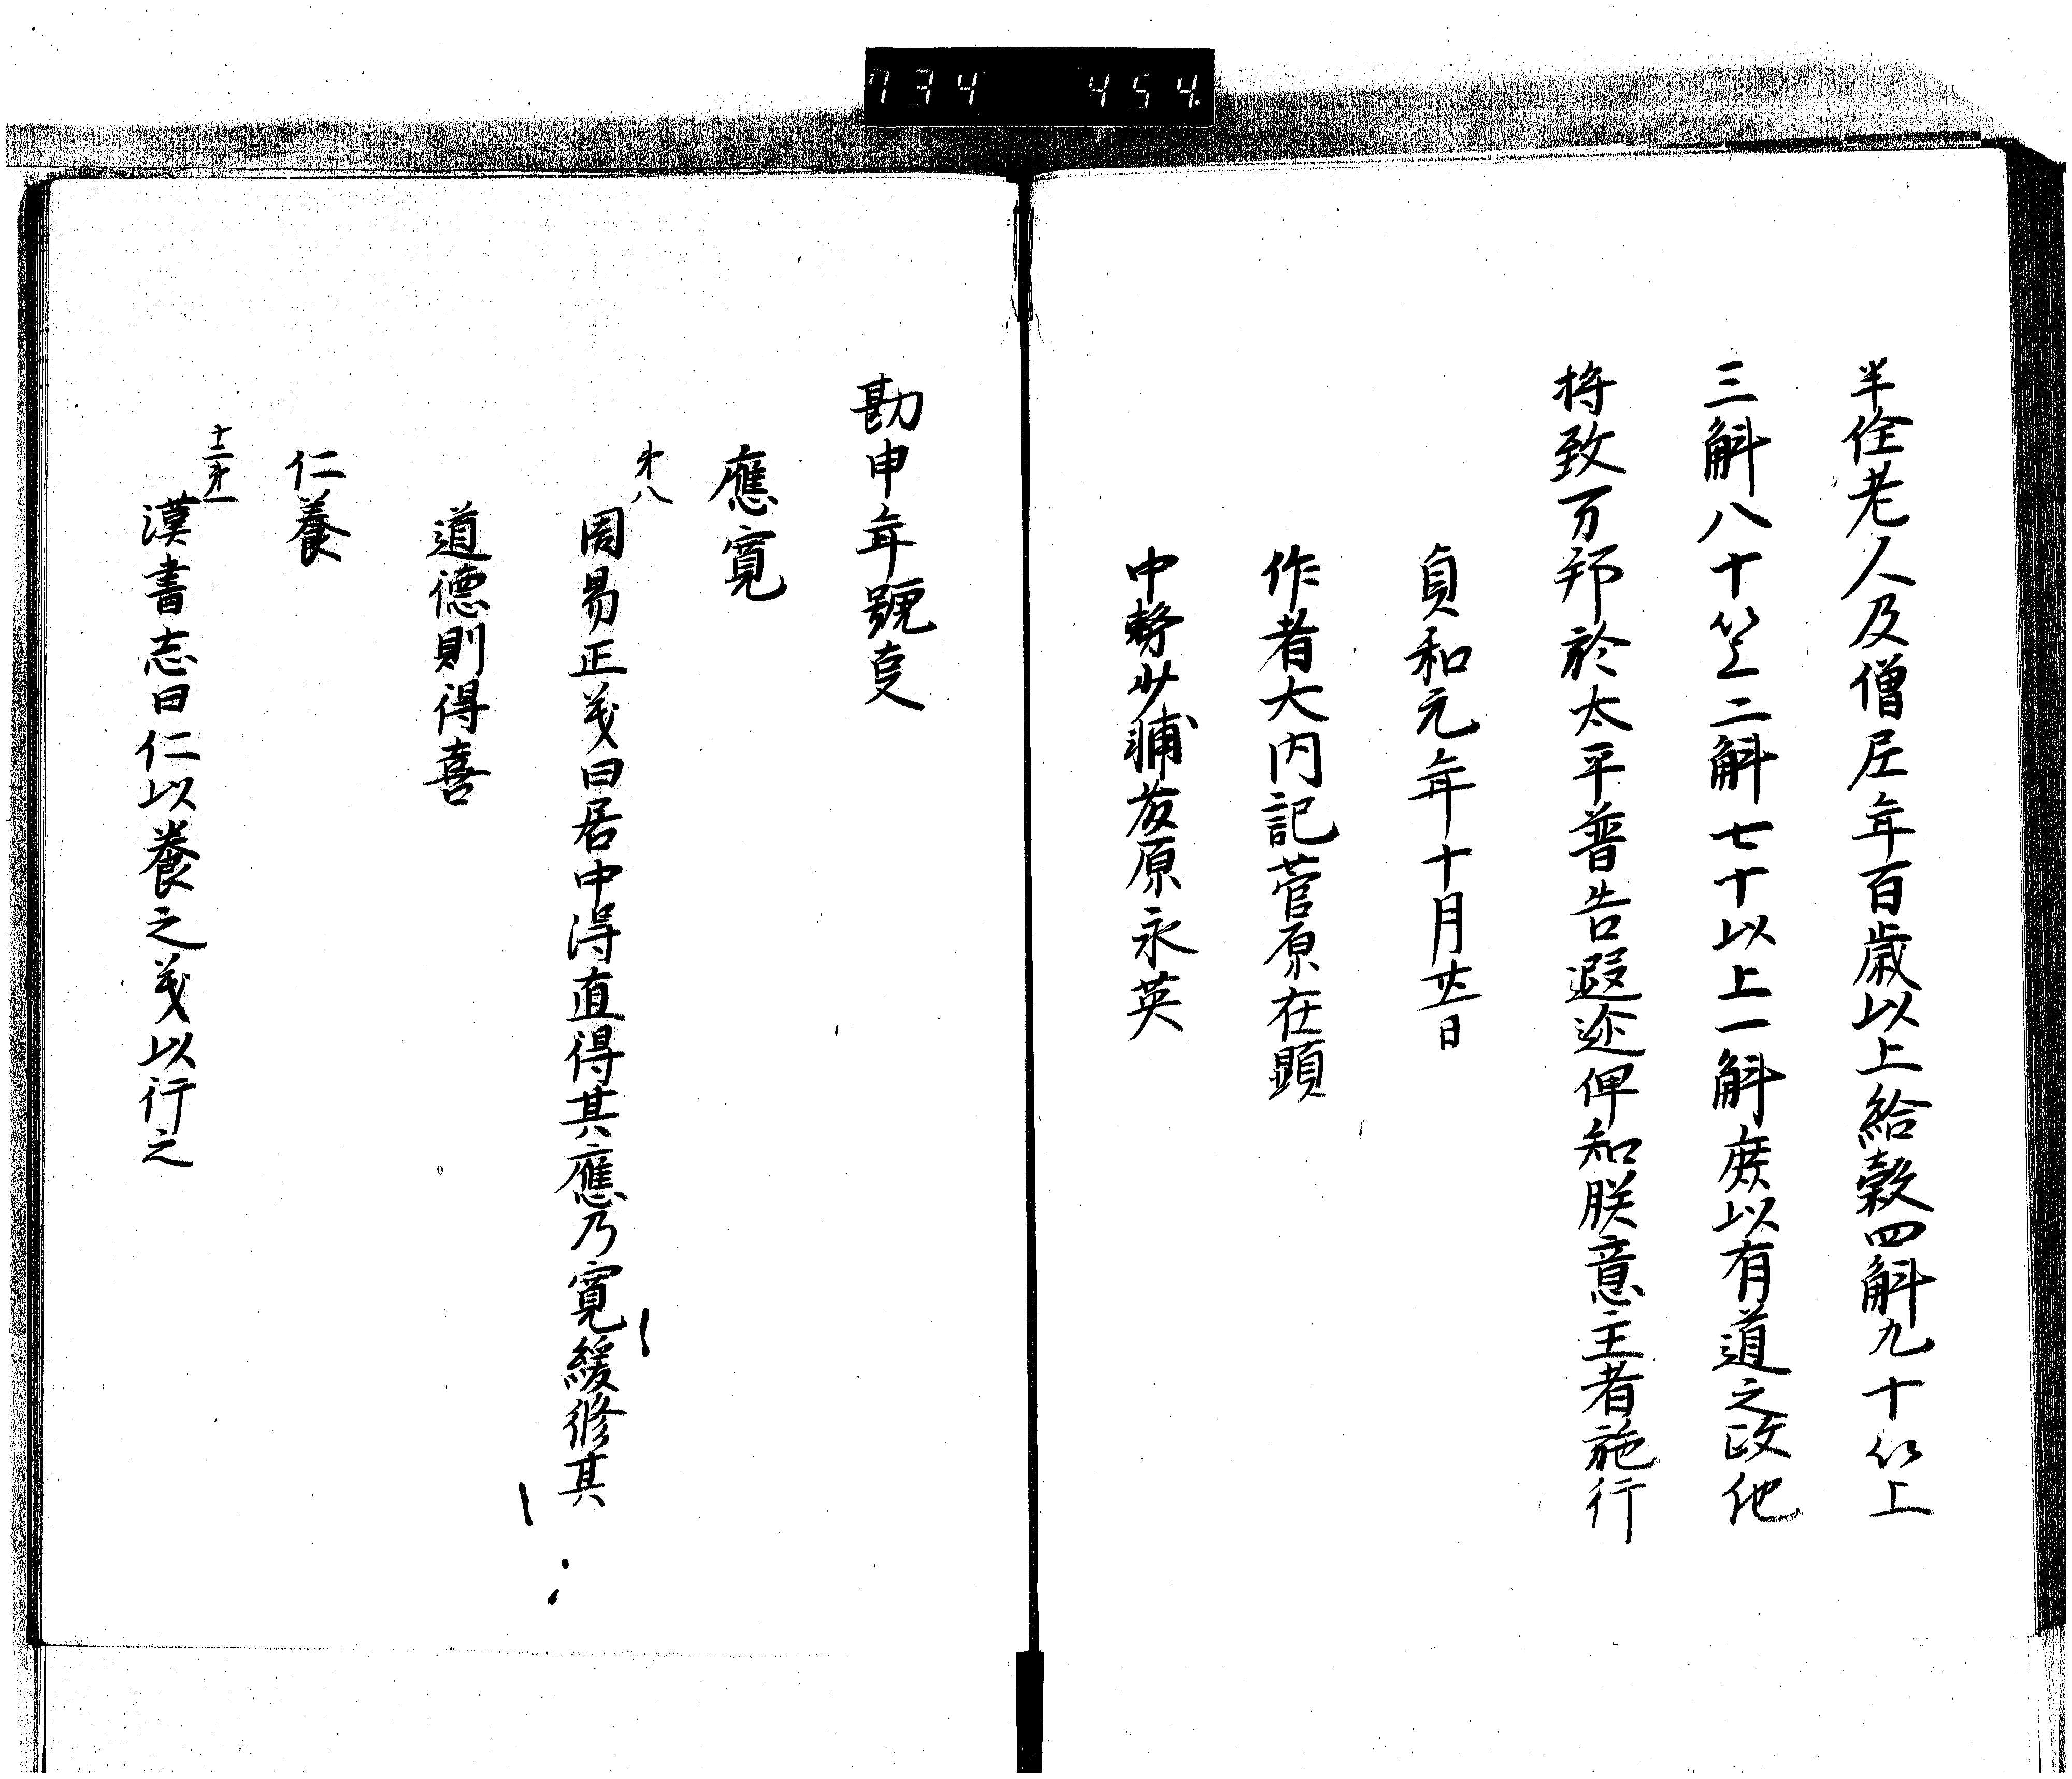 734 454
半佺老人及僧尼年百歳以上給穀四斛九十以上
三斛八十以上二斛七十以上一斛庶以有道之政他
将致万邦於太平普告遐迩俾知朕意主者施行
貞和元年十月廿一日
作者大内記菅原在顕
中務少輔藤原永英
勘申年號叓
應寛
才八
周易正義曰居中得直得其應乃寛緩修其
道德則得喜
仁養
十二才一
漢書志曰仁以養之義以行之